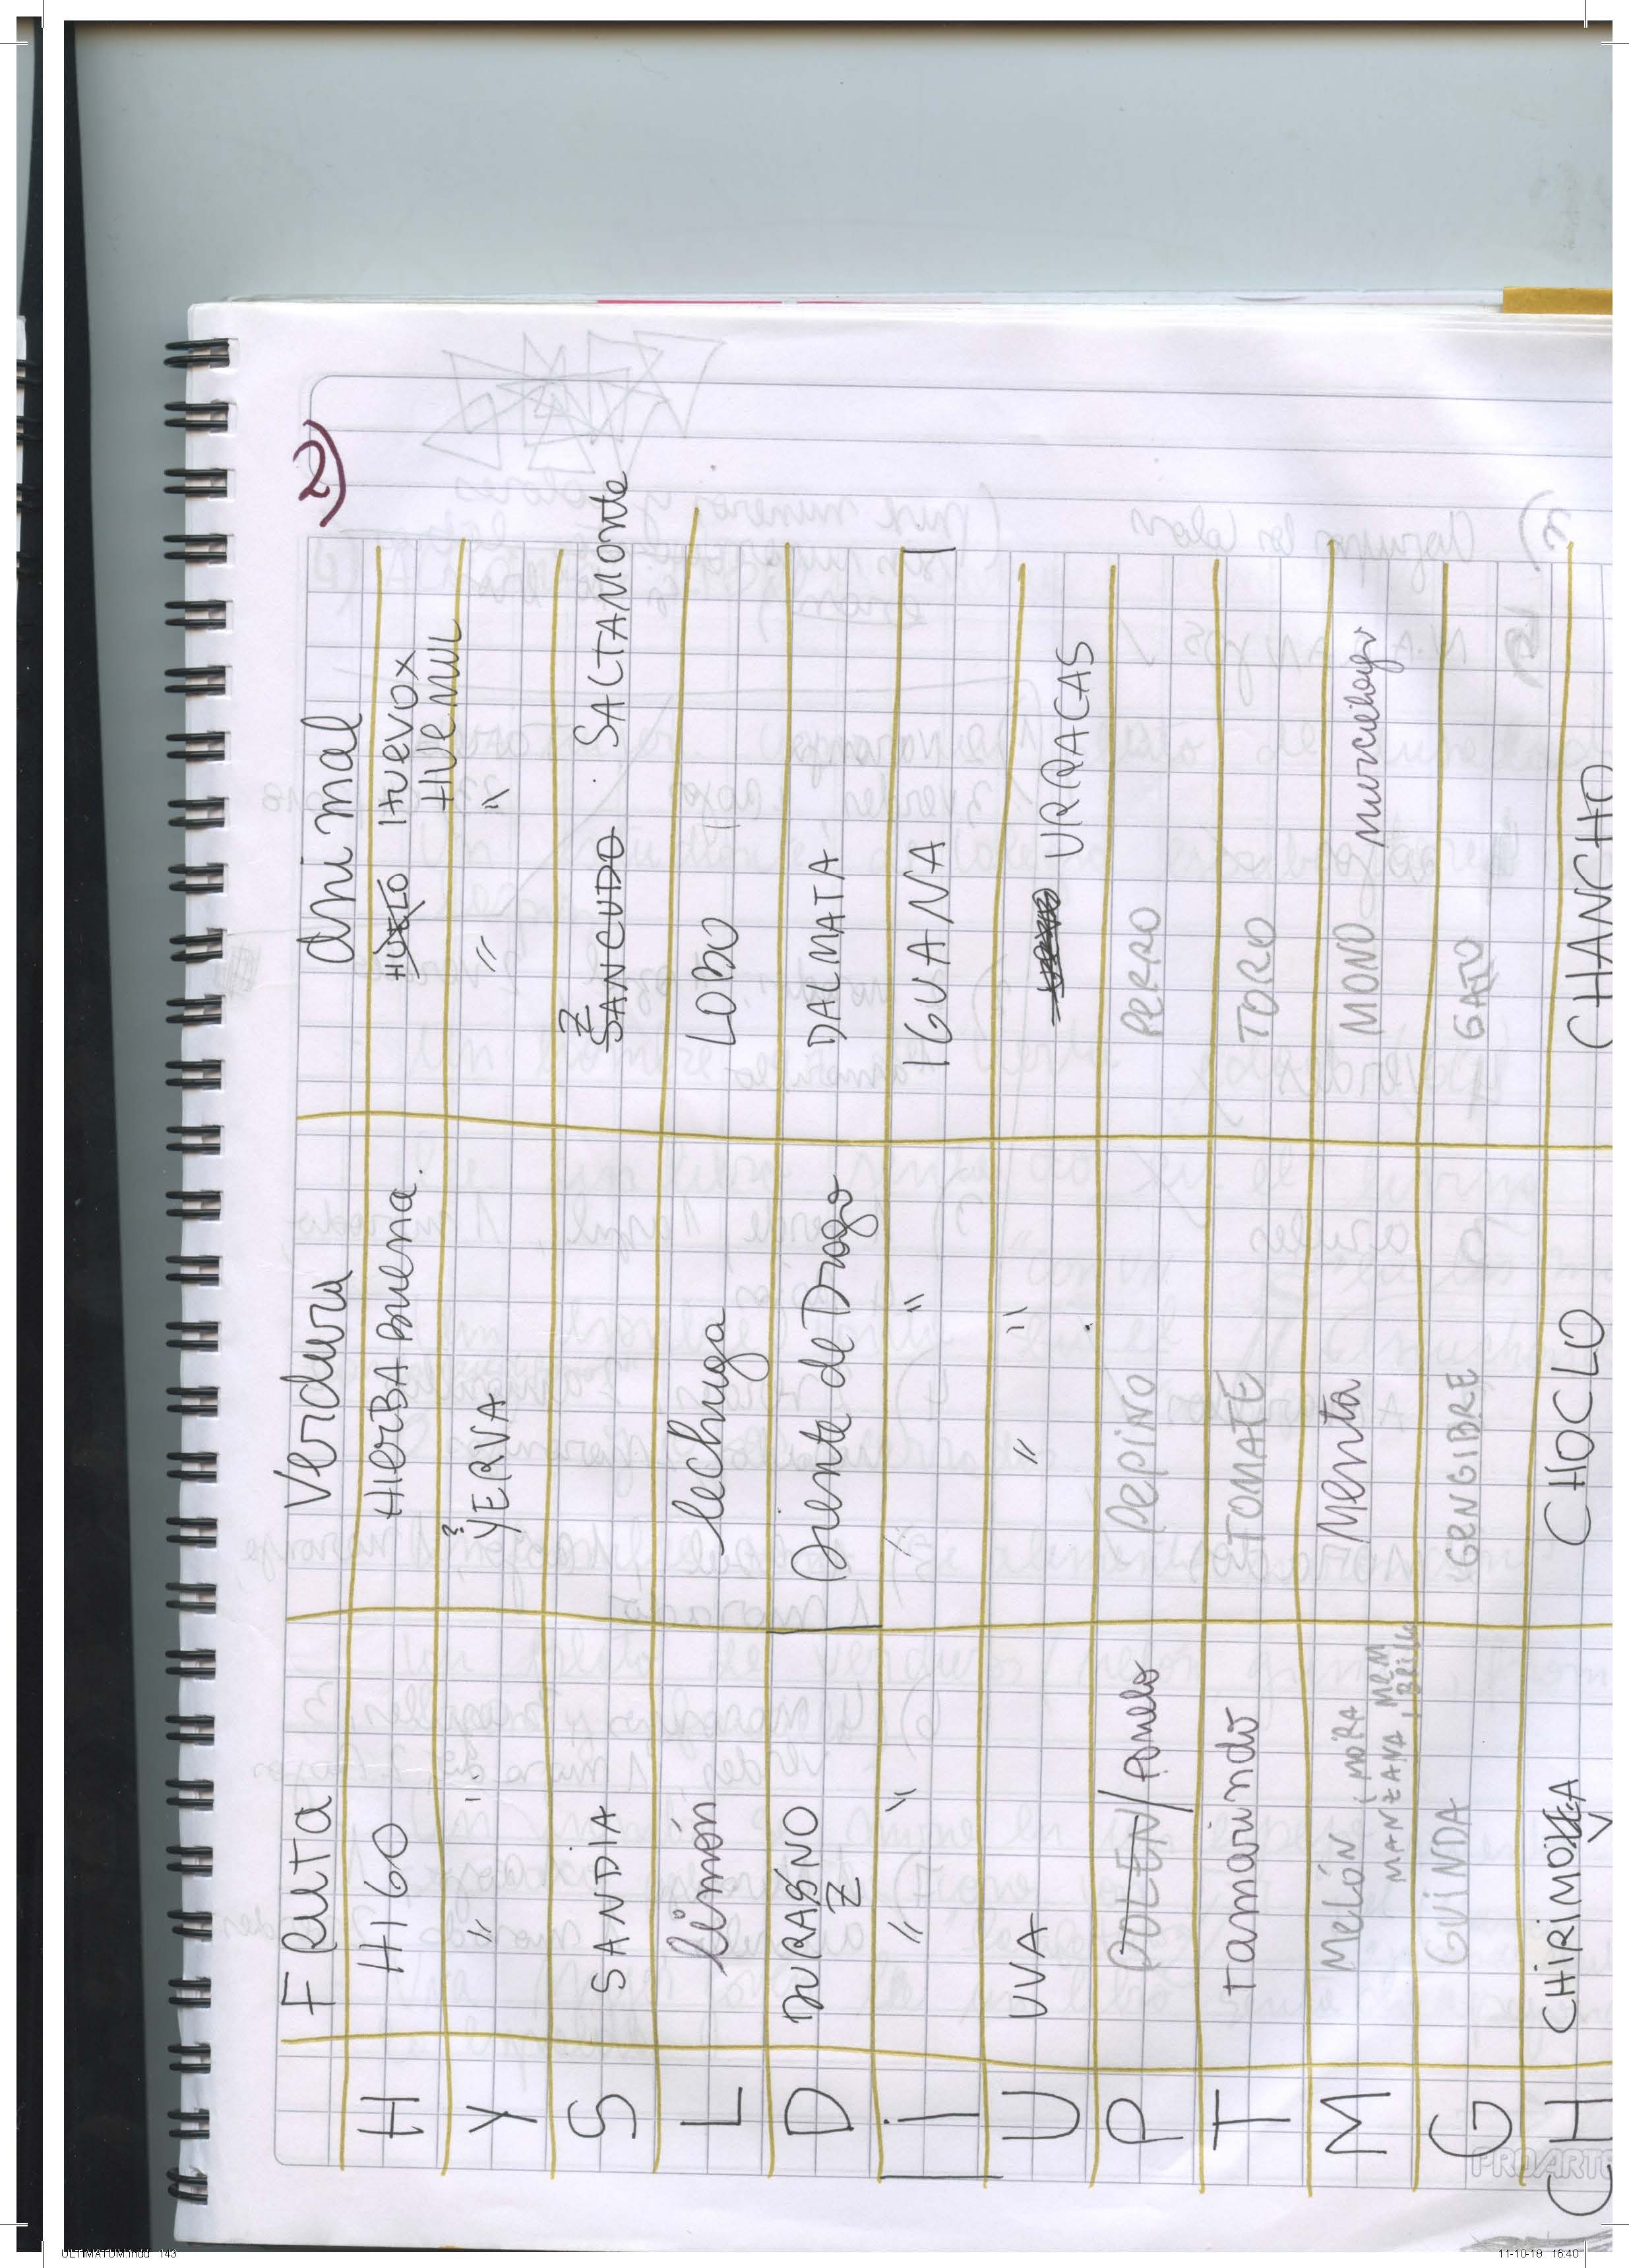 2)
Fruta Verdura Animal
H HIGO HIERBA Buena. HUELO HUEVOX
HUEMUL
Y " " ? YERVA " "
S SANDÍA Z SANCUDO . SALTAMONTE
L limón lechuga LOBO
D DURASNO Diente de Drago DALMATA
Z
I " " " IGUANA
U UVA " " URRACAS
P POLEN / Pomelo PEPINO PERRO
T Tamarindo TOMATE TORO
M MELÓN, MORA Menta MONO murcielago
MANZANA, MEM
BRILLO
G GUINDA GENGIBRE GATO
CH CHIRIMOLLA CHOCLO CHANCHO
Y
PROARTE
ULTIMATUM.indd 143
11-10-18 16:40